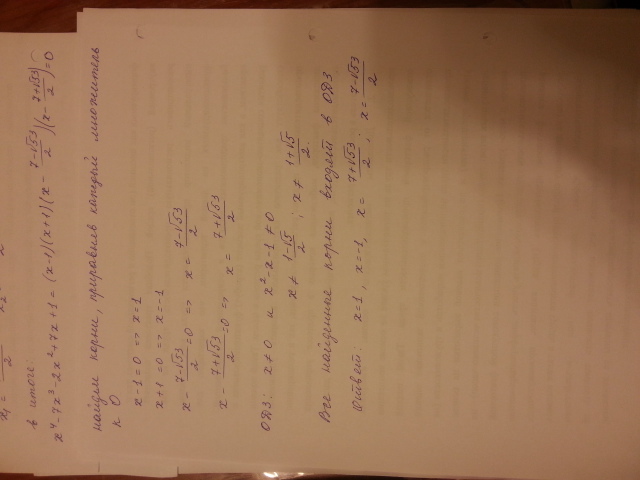 x₁ = 2 x₂ = 2
в итоге:
x⁴-7x³-2x²+7x+1=(x-1)(x+1)(x-\frac{7-√53}{2})(x-\frac{7+√53}{2})=0
найдем корни, приравнивая каждый множитель
к 0
x-1=0 => x=1
x+1=0 => x=-1
x-\frac{7-√53}{2}=0 => x=\frac{7-√53}{2}
x-\frac{7+√53}{2}=0 => x=\frac{7+√53}{2}
ОДЗ: x≠0 и x²-x-1≠0
x≠\frac{1-√5}{2}; x≠\frac{1+√5}{2}.
Все найденные корни входят в ОДЗ
Ответ: x=1, x=-1, x=\frac{7+√53}{2}; x=\frac{7-√53}{2}